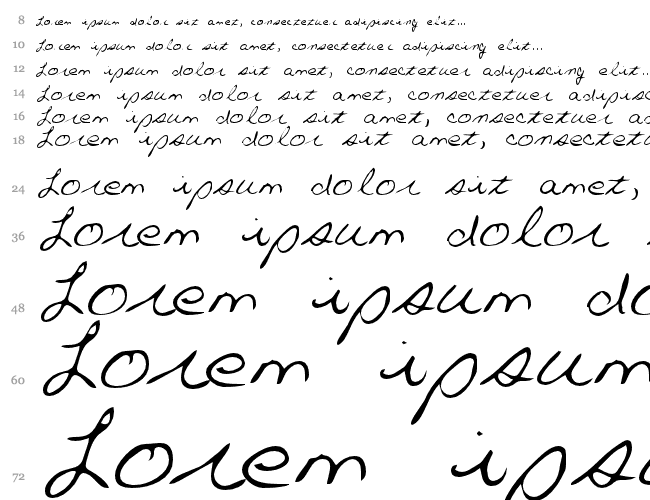 8 Lorem ipsum dolor sit amet, consectetuer adipiscing elit...
10 Lorem ipsum dolor sit amet, consectetuer adipiscing elit...
12 Lorem ipsum dolor sit amet, consectetuer adipiscing elit..
14 Lorem ipsum dolor sit amet, consectetuer adipisc
16 Lorem ipsum dolor sit amet, consectetuer ad
18 Lorem ipsum dolor sit amet, consectetu
24 Lorem ipsum dolor sit amet,
36 Lorem ipsum dolor
48 Lorem ipsum do
60 Lorem ipsum
72 Lorem ipsu